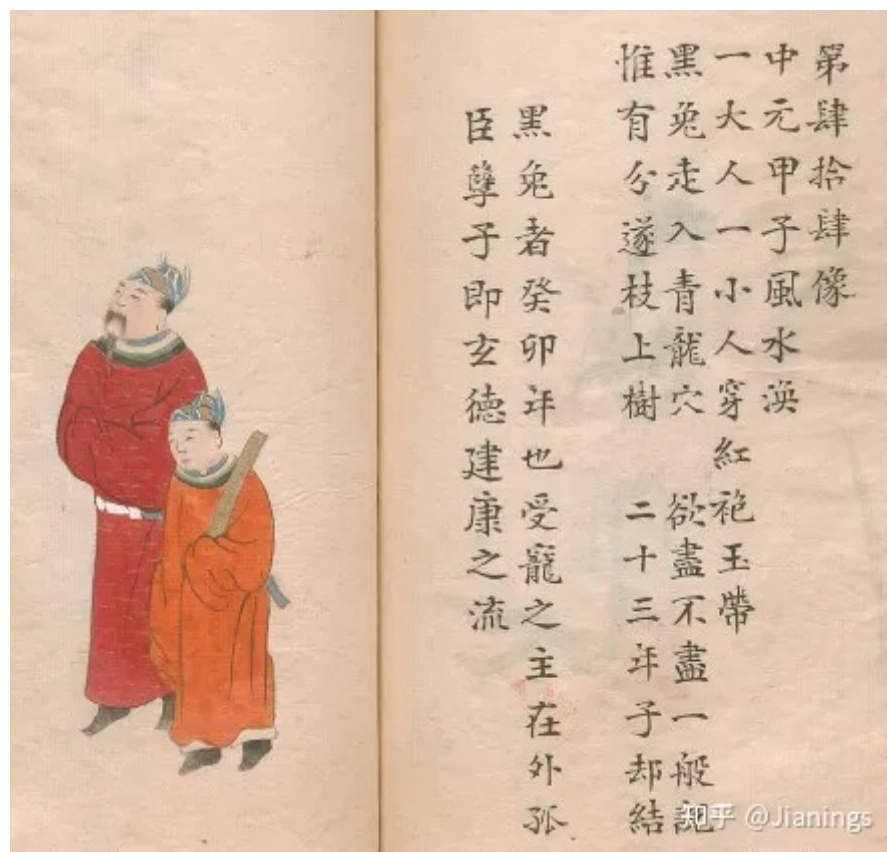 第肆拾肆像
中元甲子風水渙
一大人一小人穿紅袍玉帶
黑兔走入青龍穴 欲盡不盡一般
惟有分遂枝上樹 二十三年子却結
黑兔者癸卯年也受寵之主在外孤
臣孽子即玄德建康之流
知乎 @Jianings